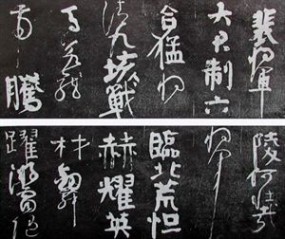 裴將軍
大君制六
合猛將
清九垓戰
馬若龍
虎騰
陵何壯哉
將軍
臨北荒怛
赫耀英
材劍舞
躍游電隨